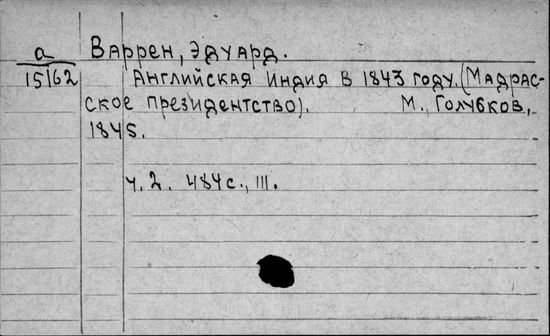 а Варрен, Эдуард.
15162 Английская Индия в 1843 году. (Мадрас-
ское президентство). М., Голубков,
1845.
ч. 2. 484 с., III.